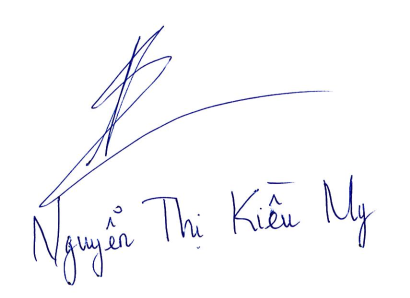 Nguyễn Thị Kiều My